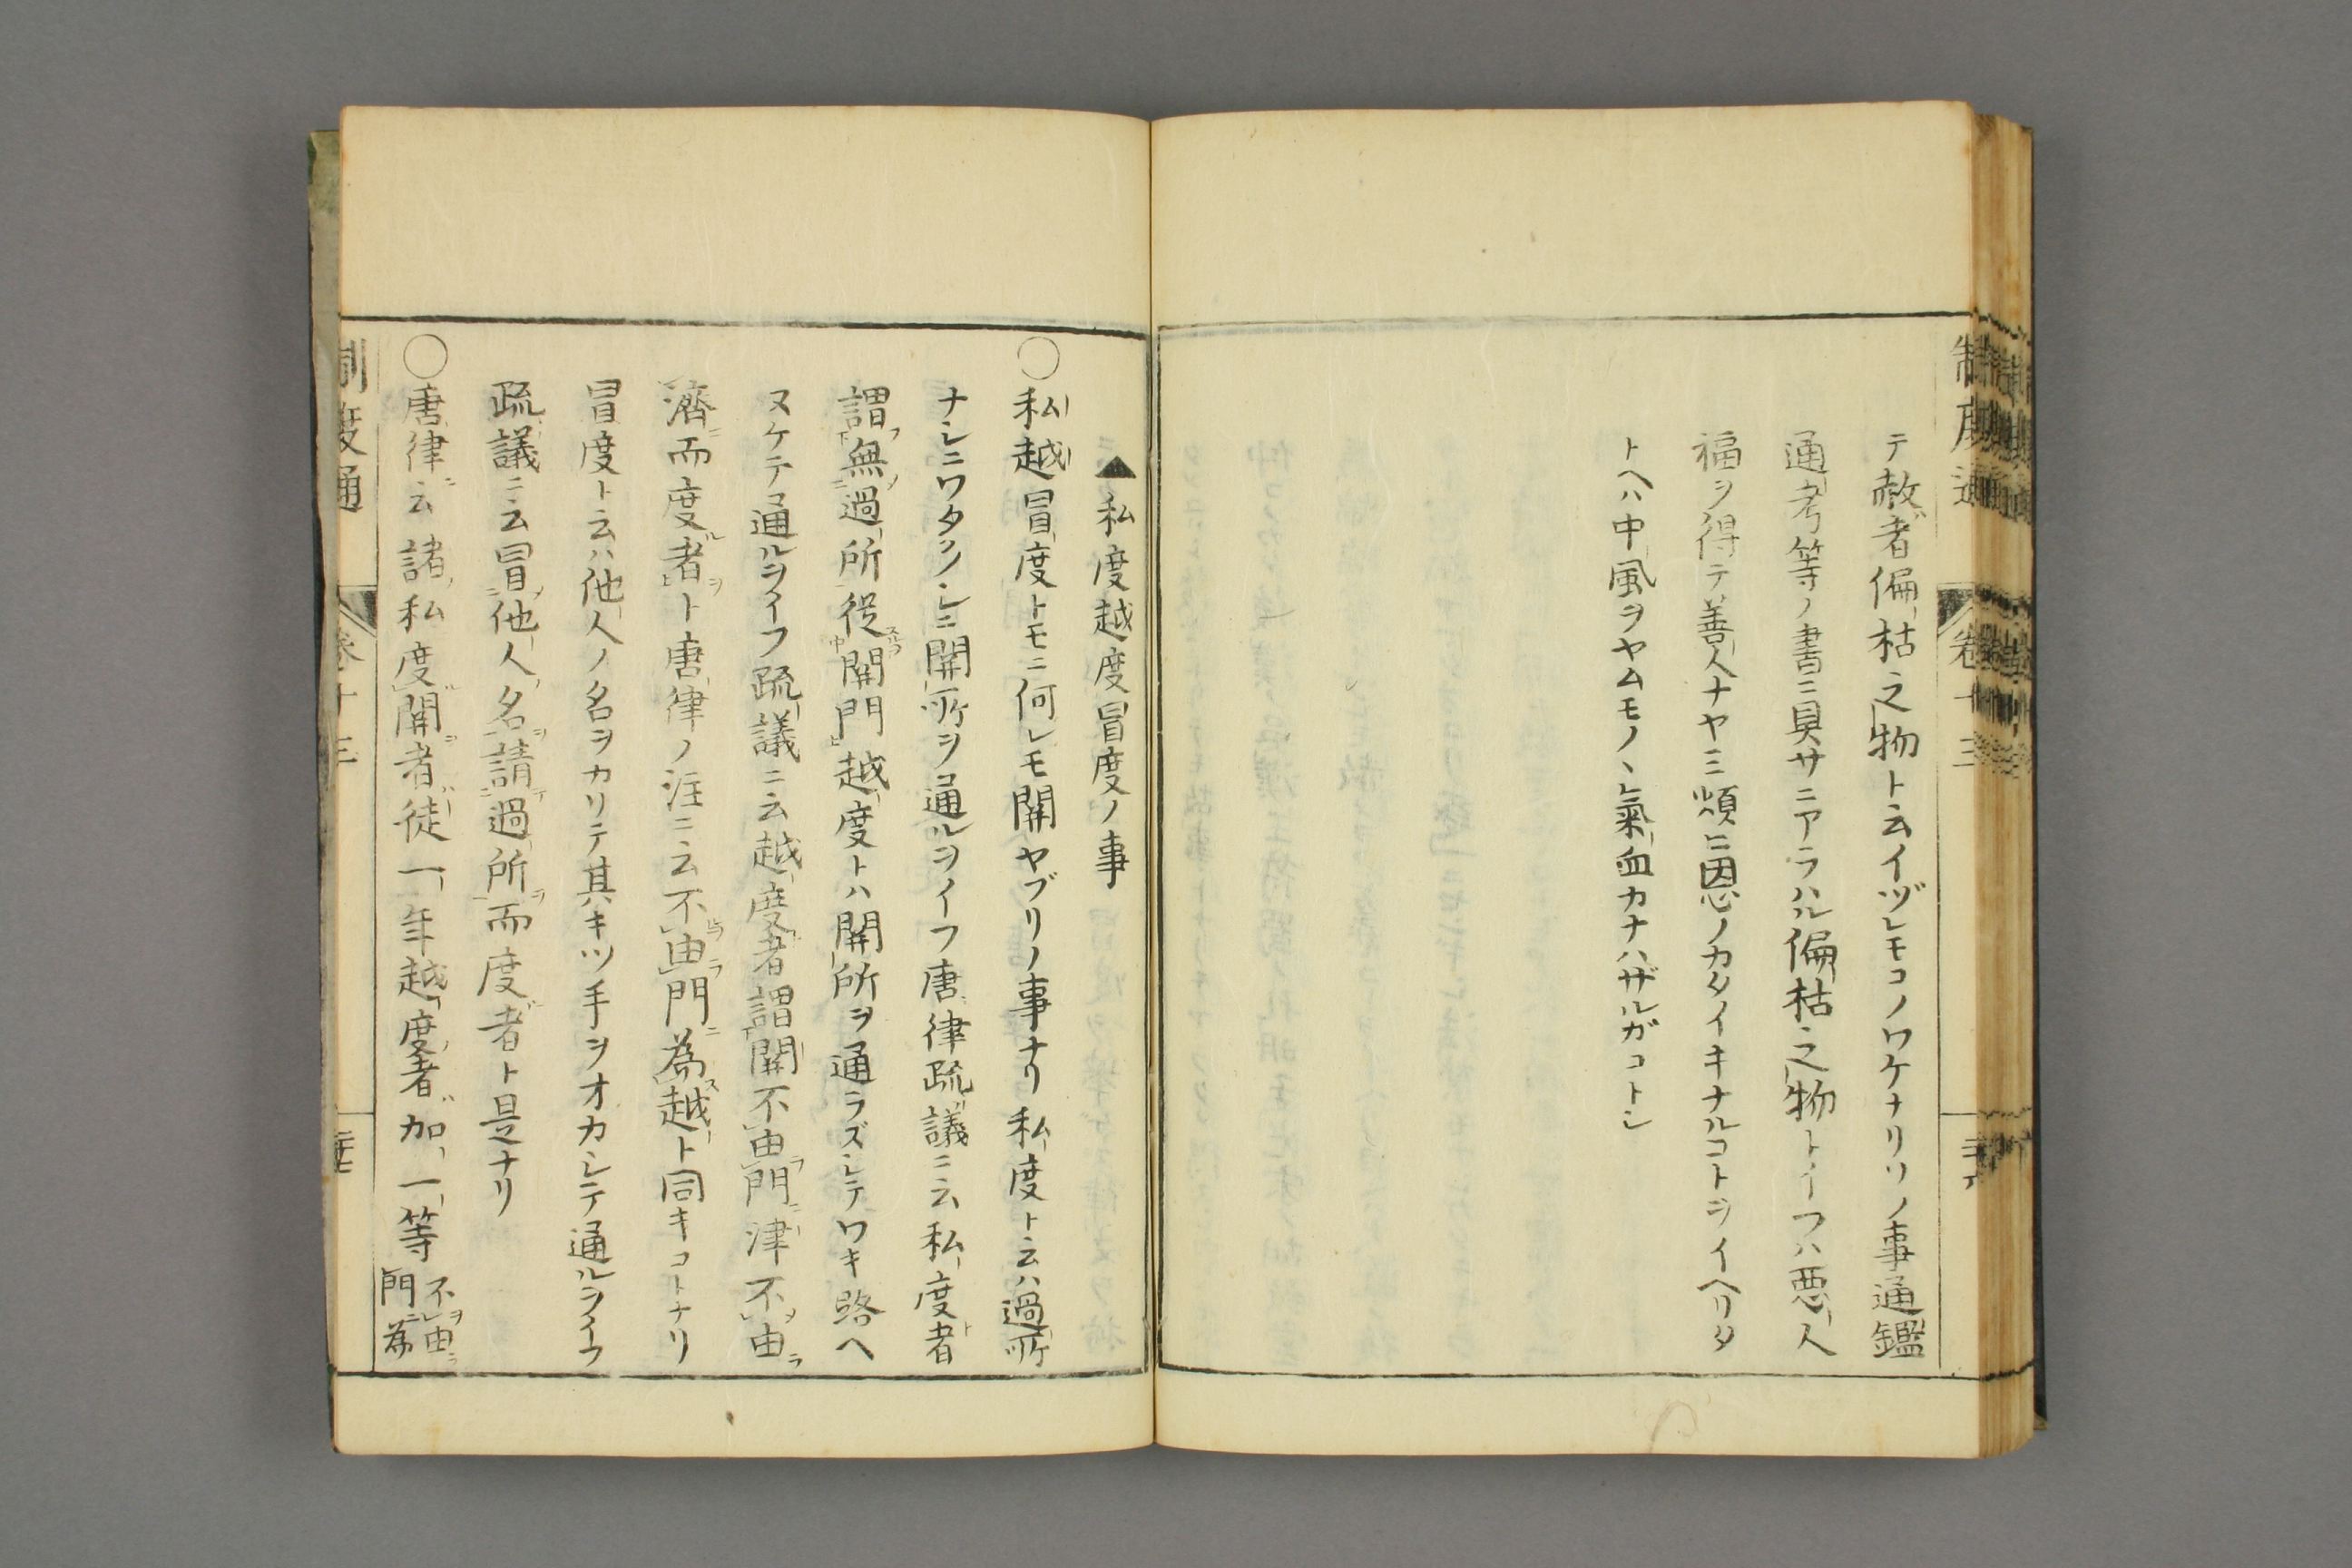 テ赦者偏枯之物ト云イヅレモコノワケナリソノ事通鑑
通考等ノ書ニ具サニアラハル偏枯之物トイフハ悪人
福ヲ得テ善人ナヤミ頻ニ恩ノカタイキナルコトヲイヘリタ
トヘハ中風ヲヤムモノヽ氣血カナハザルガコトシ
制度通
卷十三
▲私度越度冒度ノ事
○私越冒度トモニ何レモ關ヤブリノ事ナリ私度ト云ハ過所
ナシニワタクシニ關所ヲ通ルヲイフ唐律疏議ニ云私度者
謂無過所從關門越度トハ關所ヲ通ラズシテワキ路ヘ
ヌケテ通ルヲイフ疏議ニ云越度者謂關不由門津不由
濟而度者ト唐律ノ注ニ云不由門為越ト同キコトナリ
冒度ト云ハ他人ノ名ヲカリテ其キツ手ヲオカシテ通ルヲイフ
疏議ニ云冒他人名請過所而度者ト是ナリ
○唐律云諸私度關者徒一年越度者加一等不由
門為
制度通
卷十三